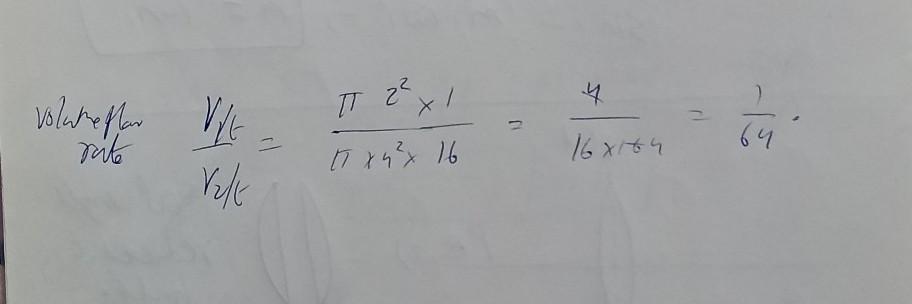 volume flow rate V₁/t / V₂/t = π 2² × 1 / π × 4² × 16 = 4 / 16 × 16 4 = 1 / 64 .